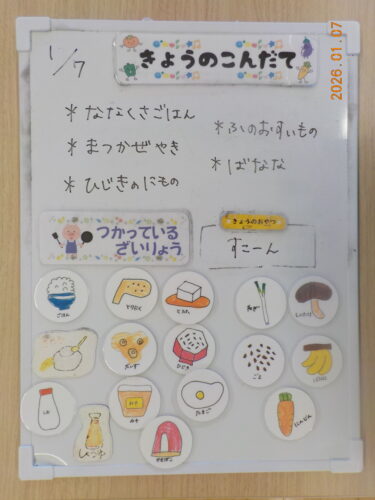 2026.01.07
1/7
きょうのこんだて
*ななくさごはん
*まつかぜやき
*ひじきのにもの
*ふのおすいもの
*ばなな
つかっている
ざいりょう
きょうのおやつ
すこーん
ごはん
とりにく
とうふ
ねぎ
しいたけ
だいず
ひじき
ごま
ばなな
しお
みそ
たまご
にんじん
しょうゆ
かまぼこ